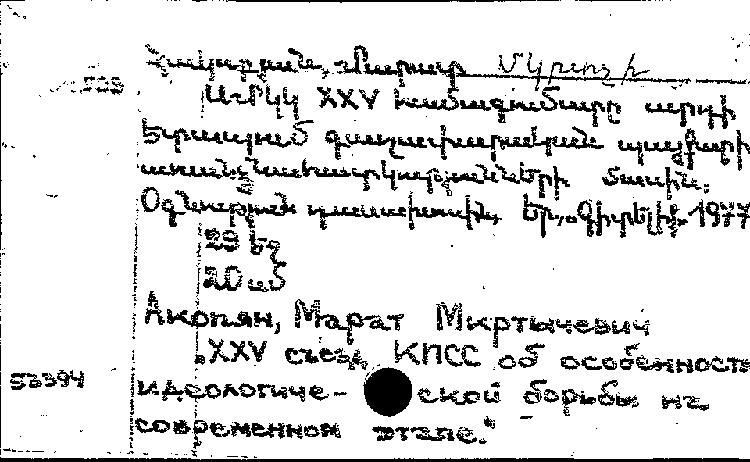 Հակոբյան, Մարատ Մկրտչի
ՍՄԿԿ XXV համագումարը արդի
էտապում գաղափարական պայքարի
առանձնահատկությունների մասին:
Օգնություն դասախոսին, Եր., Գիտելիք. 1977
29 եջ
20 սմ
Акопян, Марат Мкртычевич
„XXV съезд КПСС об особенность
53394
идеологиче- ской борьбы на
современном этапе."